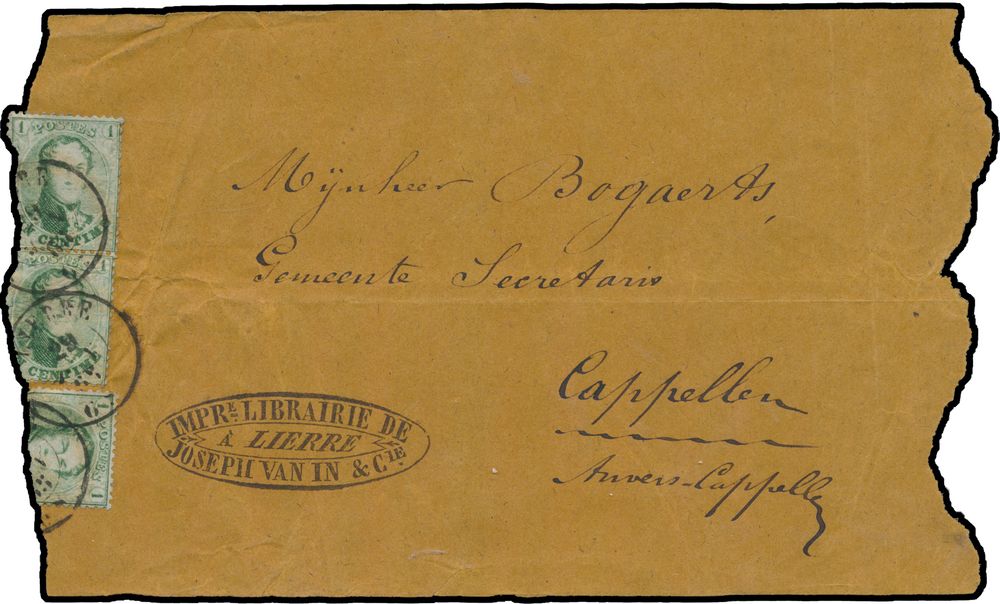 1 POSTES 1
UN CENTIME
POSTES 1
CENTIME
POSTES 1
Mijnheer Bogaerts,
Gemeente Secretaris
Cappellen
Anvers-Cappellen
IMPRIE LIBRAIRIE DE
À LIERRE
JOSEPH VAN IN & CIE